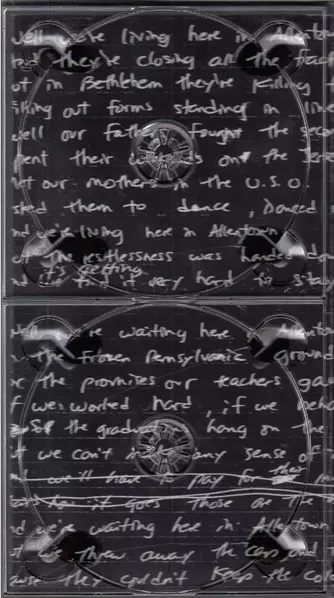 Well we're living here in Allentow
they're closing all the fact
ut in Bethlehem they're killing t
lling out forms standing in lin
well our fathers fought the sec
pent their on the Jers
et our mothers in the U.S.O
sked them to dance, Danced
nd we're living here in Allentown
ut the restlessness was handed dow
it's getting
and we find it very hard to stay
Well we're waiting here Allento
the frozen Pensylvanic ground
or the promises our teachers ga
f we worked hard, if we beha
the graduations hang on the
t we can't any sense of
we'll have to pay for their
it goes those are the
nd we're waiting here in Allentown
ut we threw away the cans and
ause they couldn't keep the co